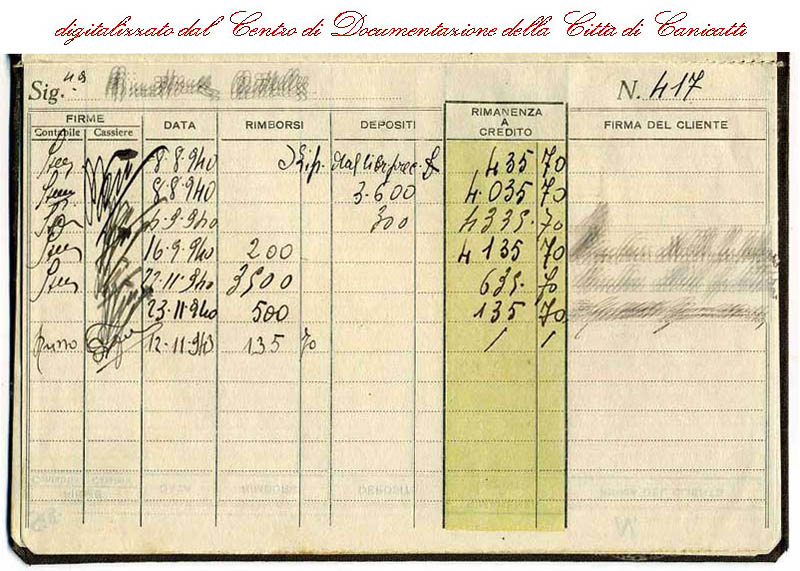 digitalizzato dal Centro di Documentazione della Città di Canicattì
Sig. N. 417
FIRME DATA RIMBORSI DEPOSITI RIMANENZA A CREDITO FIRMA DEL CLIENTE
Contabile Cassiere
8.8.940 Rip. dal lib. prec. £ 435 70
8.8.940 3.600 4.035 70
6-9-940 300 4335. 70
16.9.940 200 4135 70
22.11.940 3500 635. 70
23.11.940 500 135 70
12.11.943 135 70 / /